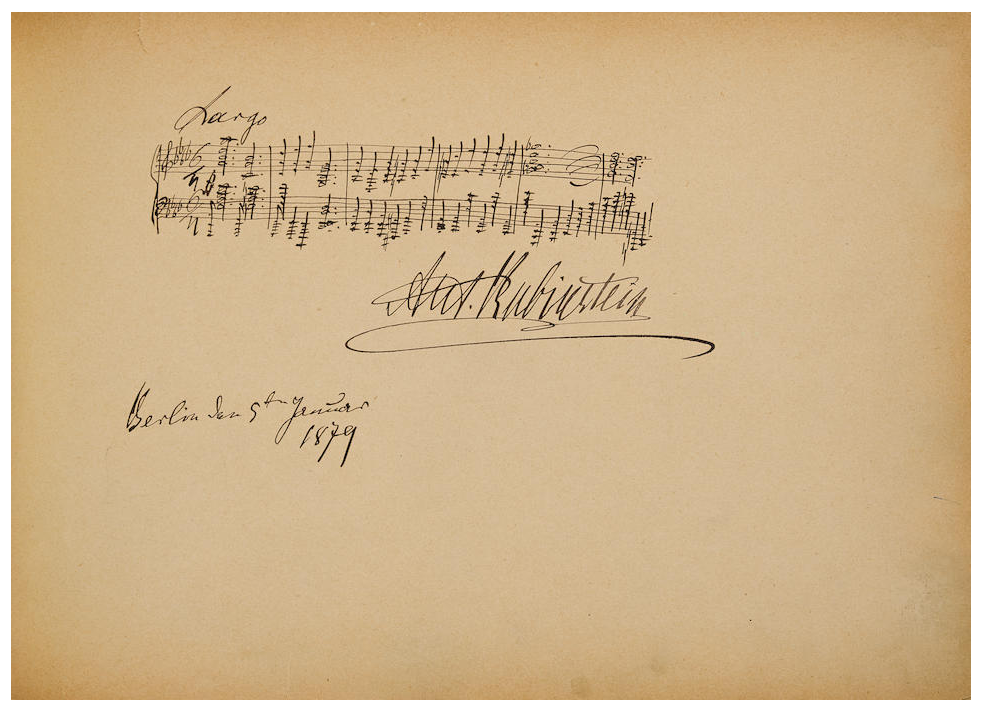 Largo
Ant. Rubinstein
Berlin den 5ten Januar
1879